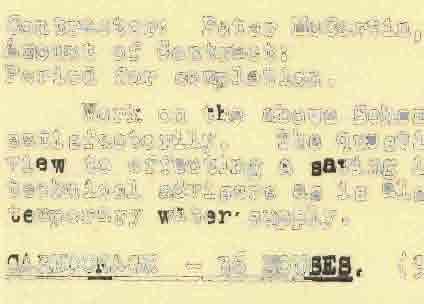 Contractor: Peter McCartin,
Amount of Contract:
Period for completion.
Work on the above Schem
satisfactorily. The questi
view to effecting a saving i
technical advisers as is
temporary water supply.
- 36 HOUSES. (S